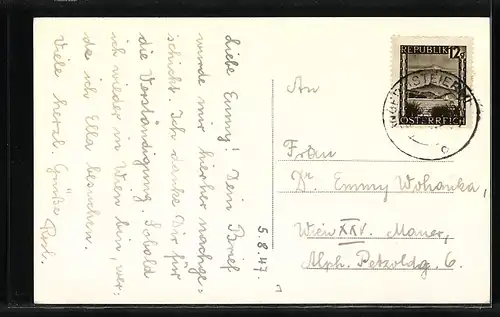 5.8.47.
Liebe Emmy! Dein Brief
wurde mir hierher nachge=
schickt. Ich danke Dir für
die Verständigung. Sobald
ich wieder in Wien bin, wer=
de ich Ella besuchen.
Viele herzl. Grüße
REPUBLIK 12g
ÖSTERREICH
An
Frau
Dr. Emmy Wohanka,
Wien XXV. Mauer,
Alph. Petzoldg. 6.